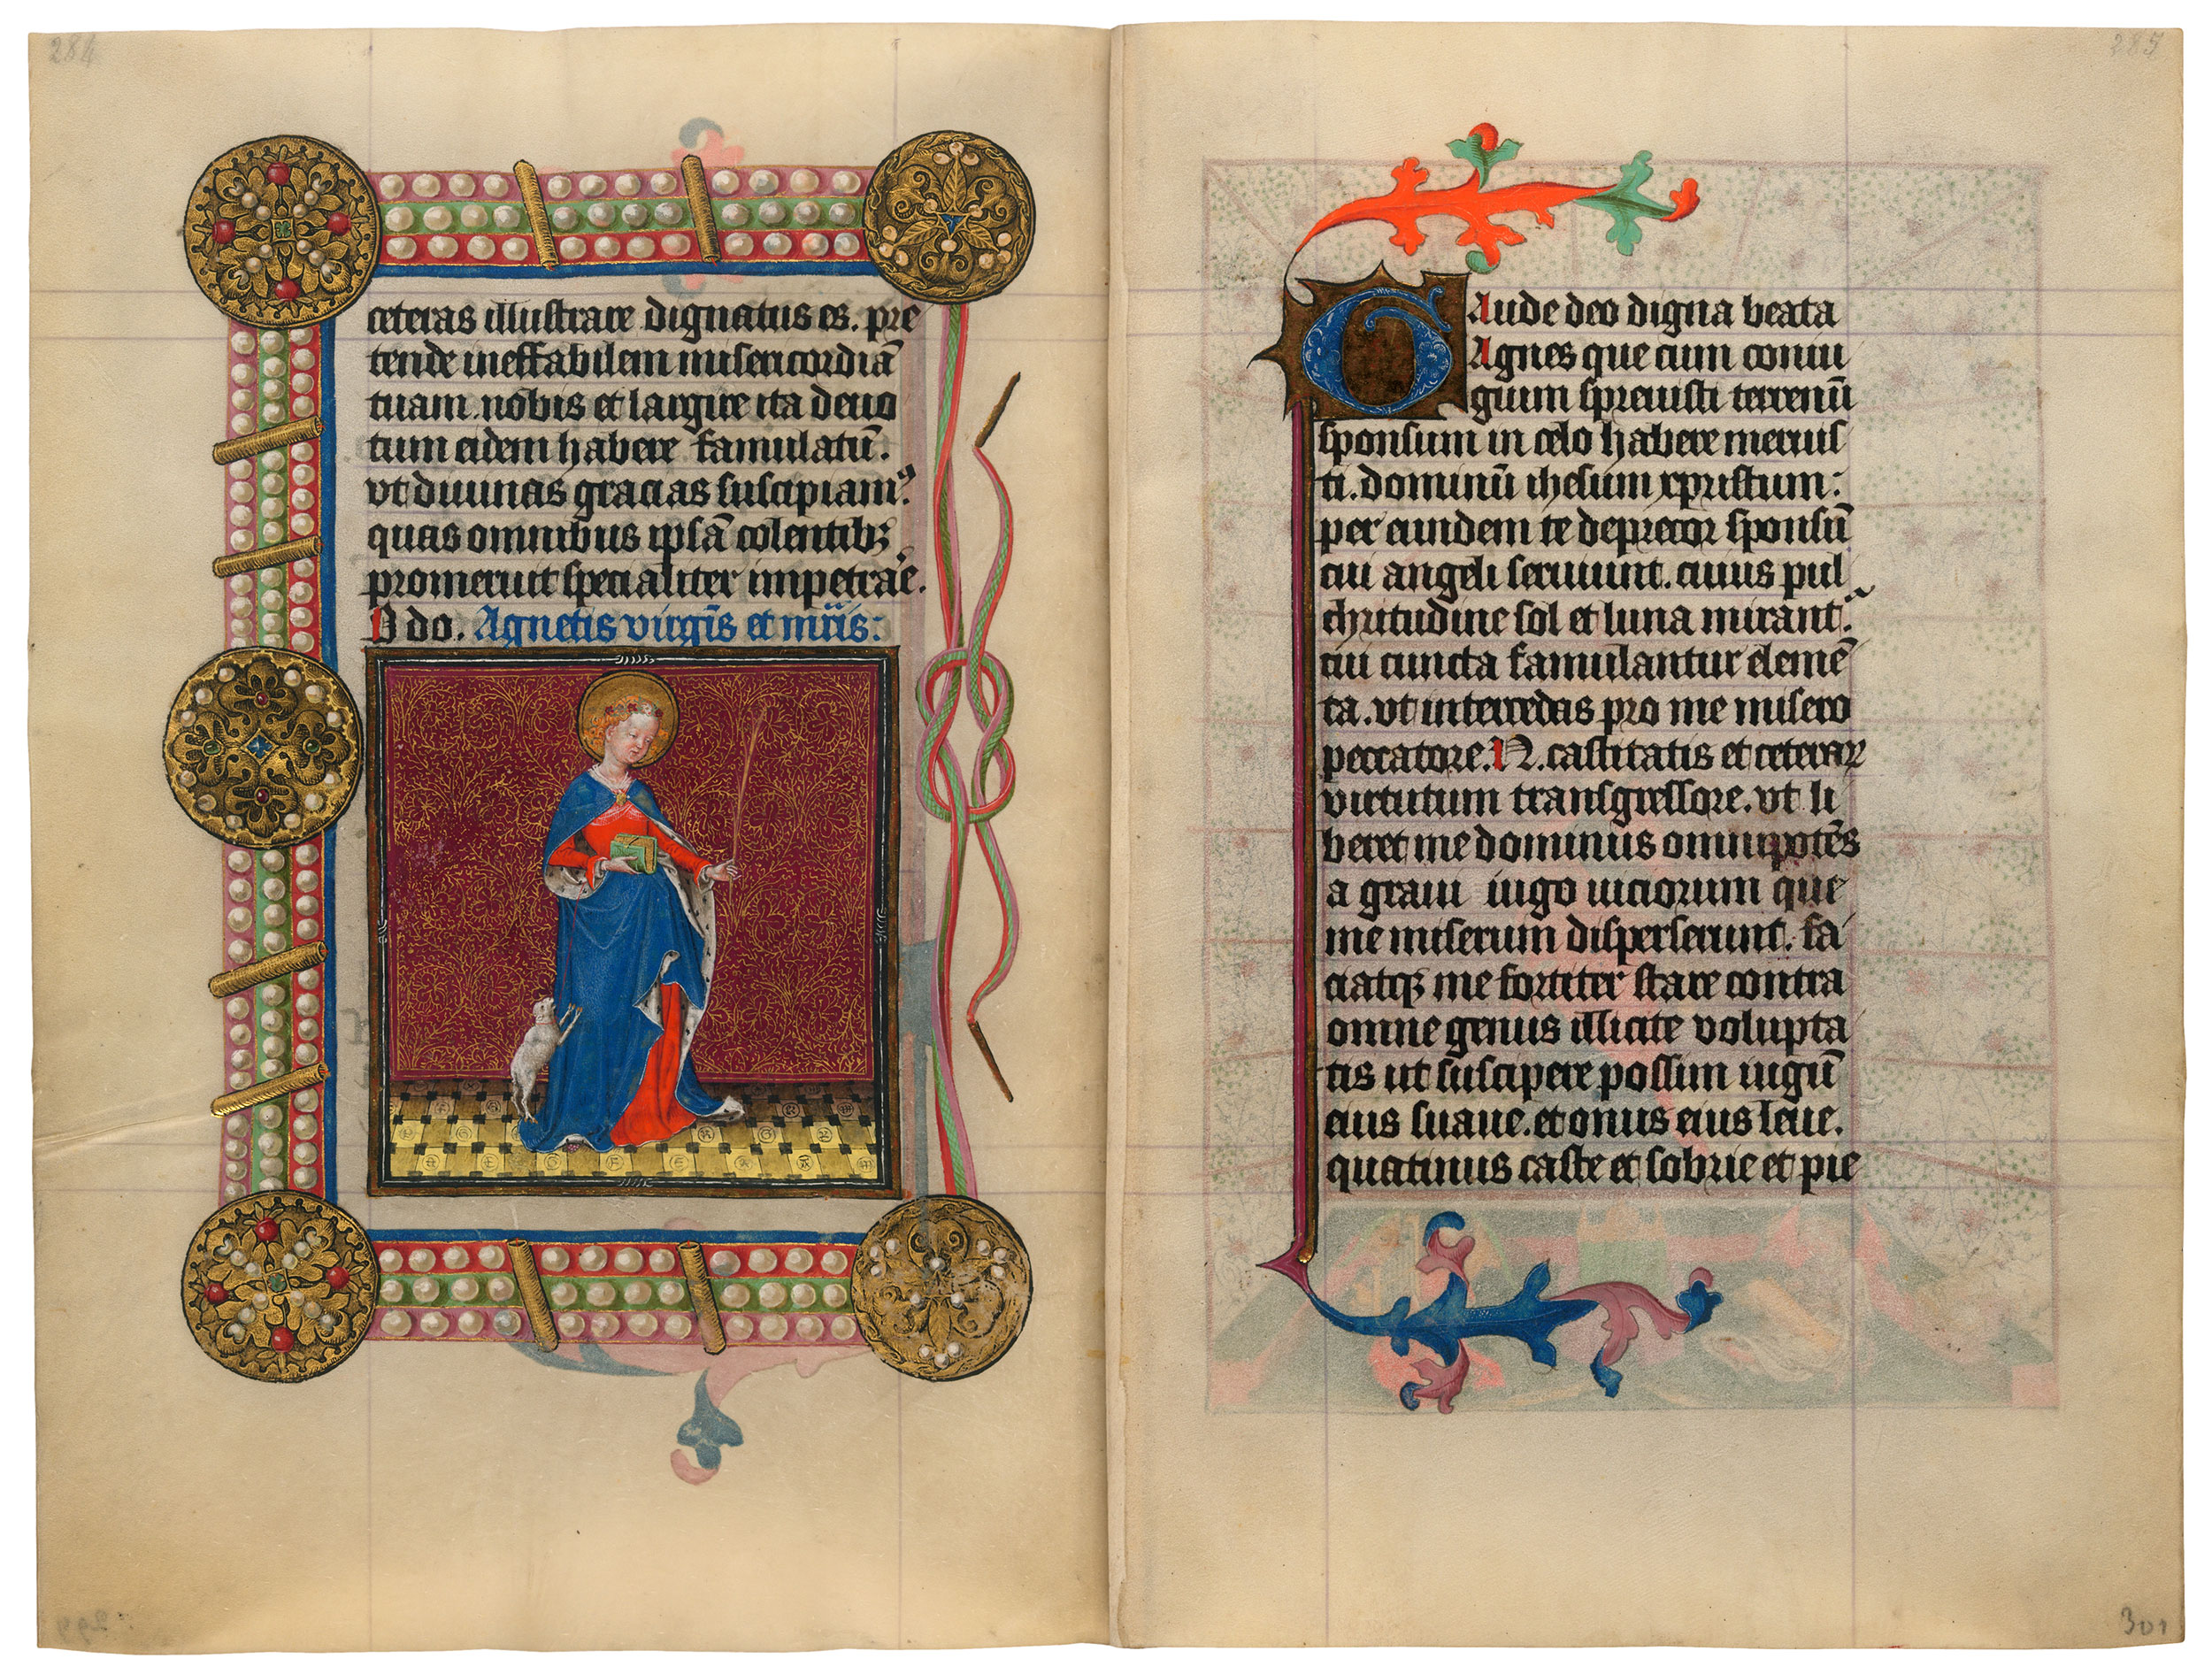 284
ceteras illustrare dignatus es. pre
tende ineffabilem misericordiā
tuam nobis et largire ita deuo
tum eidem habere famulatū.
vt diuinas gracias suscipiam⁹
quas omnibus ipsā colentibꝫ
promeruit specialiter impetrare.
do. Agnetis virgīs et mr̄is:
285
Gaude deo digna beata
Agnes que cum coniu
gium spreuisti terrenū
sponsum in celo habere meruis
ti. dominū ihesum xpristum:
per eundem te deprecor sponsū
cui angeli seruiunt. cuius pul
chritudine sol et luna mirant᷑.
cui cuncta famulantur elemē
ta. vt intercedas pro me misero
peccatore. N. castitatis et ceteraꝝ
virtutum transgressore. vt li
beret me dominus omnipotēs
a graui iugo uiciorum que
me miserum disperserunt. fa
ciatqꝫ me fortiter stare contra
omne genus illicite volupta
tis ut suscipere possim iugū
eius suaue. et onus eius leue.
quatinus caste et sobrie et pie
301